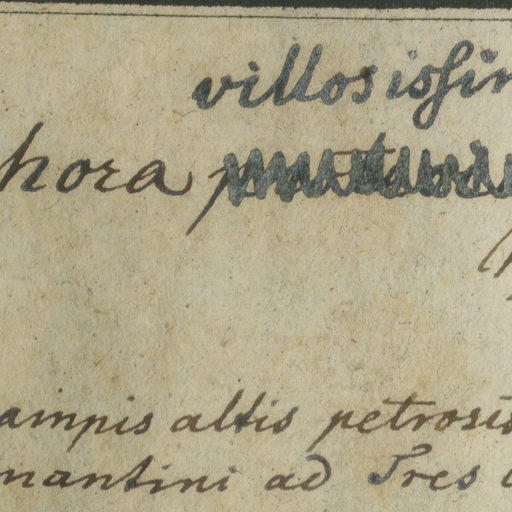 villosissim
hora
campis altis petrosis
mantini ad Tres